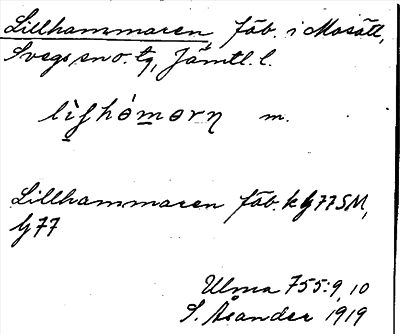 Lillhammaren fäb. i Mosätt,
Svegs sn o. tg, Jämtl. l.
m.
Lillhammaren fäb. kbj 77 SM,
bj 77
Ulma 755:9, 10
S. Åsander 1919